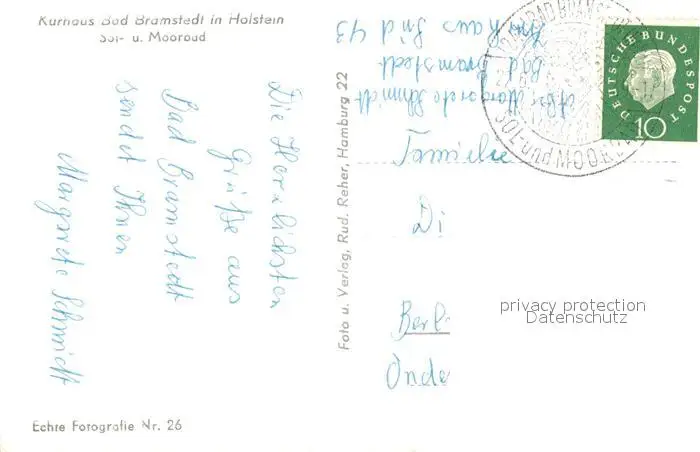 Kurhaus Bad Bramstedt in Holstein
Sol- u. Moorbad
Die Herzlichsten
Grüße aus
Bad Bramstedt
sendet Ihnen
Margarete Schmidt
Echte Fotografie Nr. 26
Foto u. Verlag, Rud. Reher, Hamburg 22
Abs. Margarete Schmidt
Bad Bramstedt
DEUTSCHE BUNDESPOST
10
BAD BRAMSTEDT
SOL- und MOORBAD
Familie
Di
Berl
Onde
privacy protection
Datenschutz